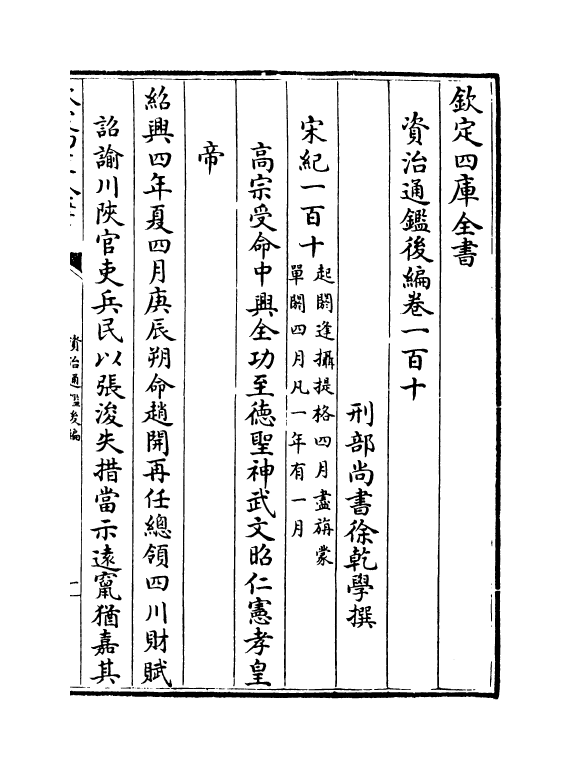 欽定四庫全書
資治通鑑後編卷一百十
刑部尚書徐乾學撰
宋紀一百十
起閼逢攝提格四月盡旃蒙
單閼四月凡一年有一月
高宗受命中興全功至德聖神武文昭仁憲孝皇
帝
紹興四年夏四月庚辰朔命趙開再任總領四川財賦
詔諭川陜官吏兵民以張浚失措當示遠竄猶嘉其
資治通鑑後編
一